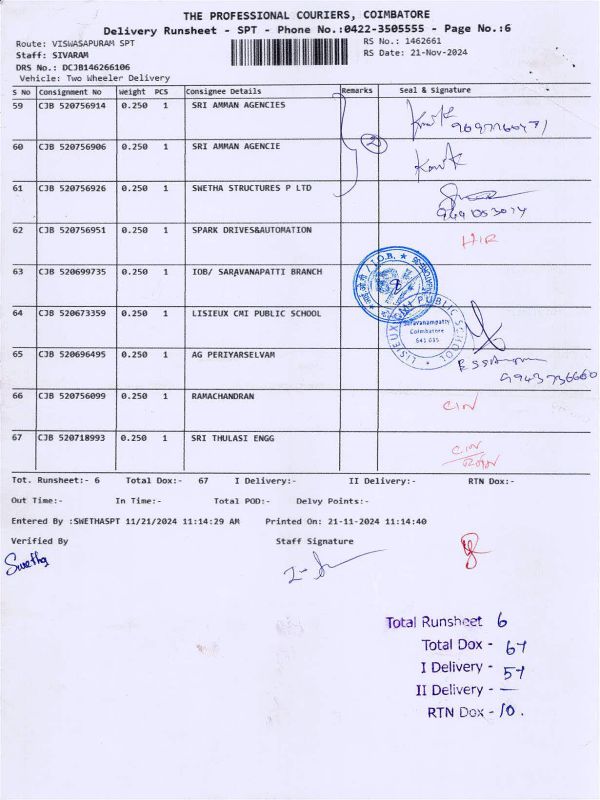 THE PROFESSIONAL COURIERS, COIMBATORE
Delivery Runsheet - SPT - Phone No.:0422-3505555 - Page No.:6
Route: VISWASAPURAM SPT
RS No.: 1462661
Staff: SIVARAM
RS Date: 21-Nov-2024
DRS No.: DCJB146266106
Vehicle: Two Wheeler Delivery
S No Consignment No Weight PCS Consignee Details Remarks Seal & Signature
59 CJB 520756914 0.250 1 SRI AMMAN AGENCIES
60 CJB 520756906 0.250 1 SRI AMMAN AGENCIE
2
61 CJB 520756926 0.250 1 SWETHA STRUCTURES P LTD
62 CJB 520756951 0.250 1 SPARK DRIVES&AUTOMATION
63 CJB 520699735 0.250 1 IOB/ SARAVANAPATTI BRANCH
I.O.B.
64 CJB 520673359 0.250 1 LISIEUX CMI PUBLIC SCHOOL
LISIEUX CMI PUBLIC SCHOOL
Saravanampatty
Coimbatore
641 035
65 CJB 520696495 0.250 1 AG PERIYARSELVAM
9943736660
66 CJB 520756099 0.250 1 RAMACHANDRAN
67 CJB 520718993 0.250 1 SRI THULASI ENGG
Tot. Runsheet:- 6 Total Dox:- 67 I Delivery:- II Delivery:- RTN Dox:-
Out Time:- In Time:- Total POD:- Delvy Points:-
Entered By :SWETHASPT 11/21/2024 11:14:29 AM Printed On: 21-11-2024 11:14:40
Verified By Staff Signature
Swetha
Total Runsheet 6
Total Dox - 67
I Delivery - 57
II Delivery - —
RTN Dox - 10.